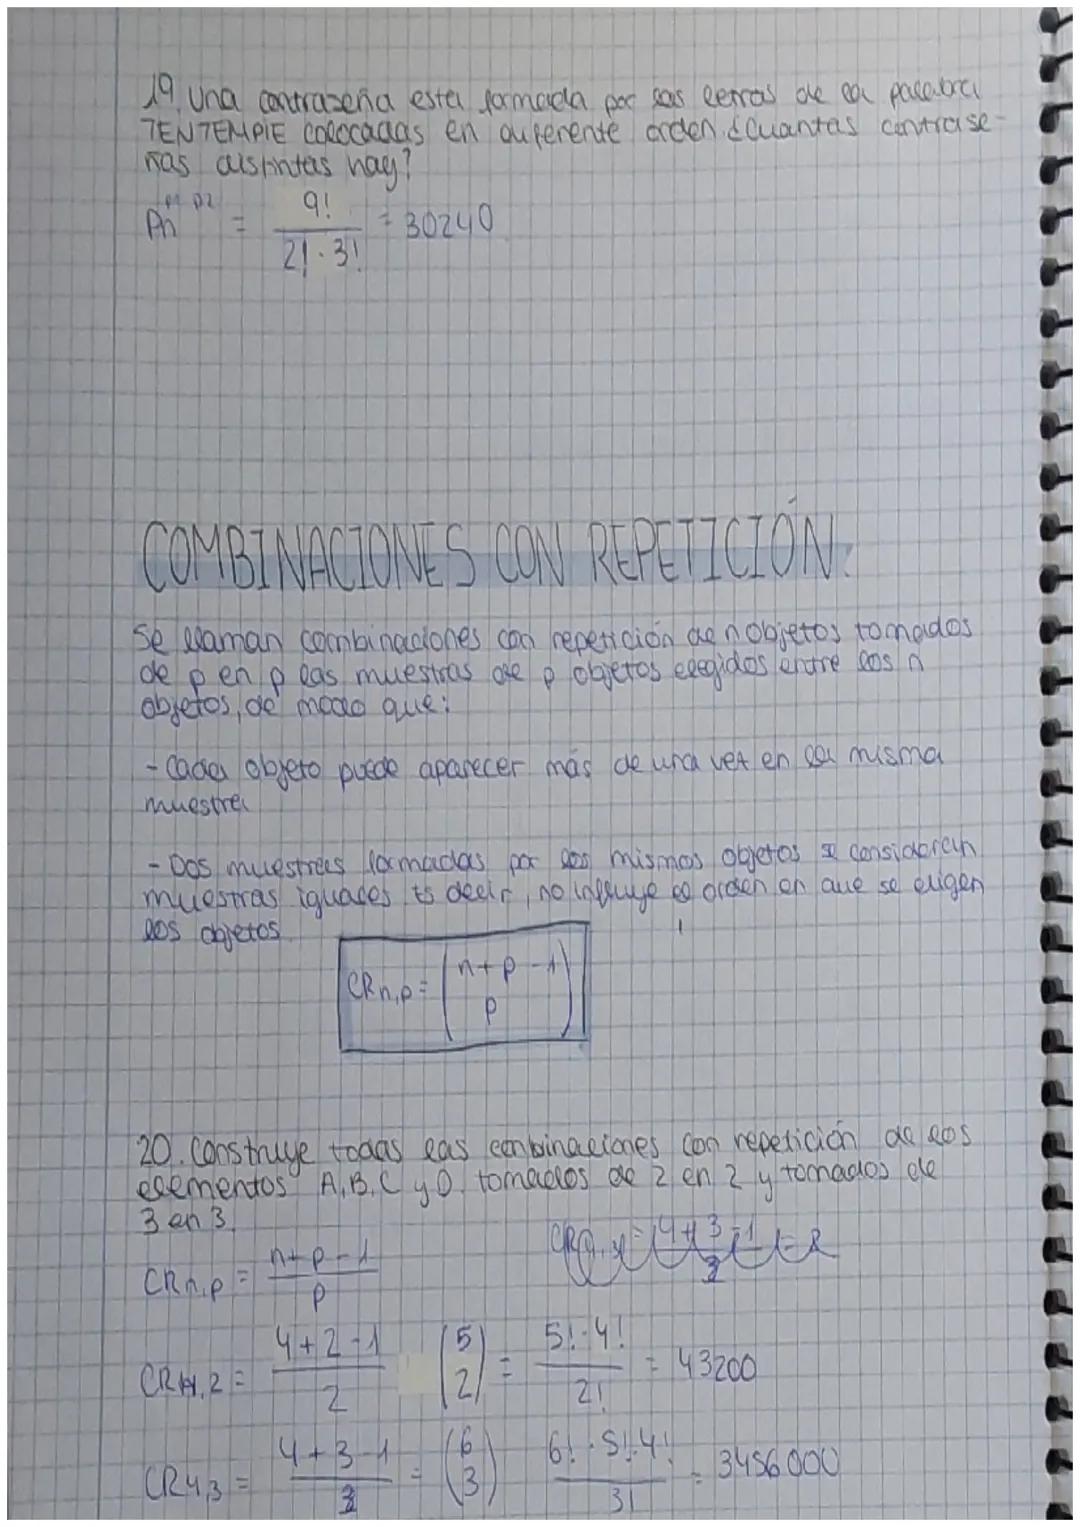 19. Una contraseña esta formada por las letras de la palabra
TENTEMPIE colocadas en diferente orden ¿Cuantas contrase-
ñas distintas hay?
Pn^{p1 p2} = 9! / (2! · 3!) = 30240
COMBINACIONES CON REPETICIÓN:
Se llaman combinaciones con repetición de n objetos tomados
de p en p las muestras de p objetos elegidos entre los n
objetos, de modo que:
- Cada objeto puede aparecer más de una vez en la misma
muestra
- Dos muestras formadas por los mismos objetos se consideran
muestras iguales Es decir, no influye el orden en que se eligen
los objetos
CRn,p = (n+p-1 / p)
20. Construye todas las conbinaciones con repetición de los
elementos A, B, C y D. tomados de 2 en 2 y tomados de
3 en 3.
CRn,p = n+p-1 / p
CR4,2 = 4+2-1 / 2 (5 / 2) = 5!·4! / 2! = 43200
CR4,3 = 4+3-1 / 3 = (6 / 3) 6!·5!·4! / 3! = 3456000